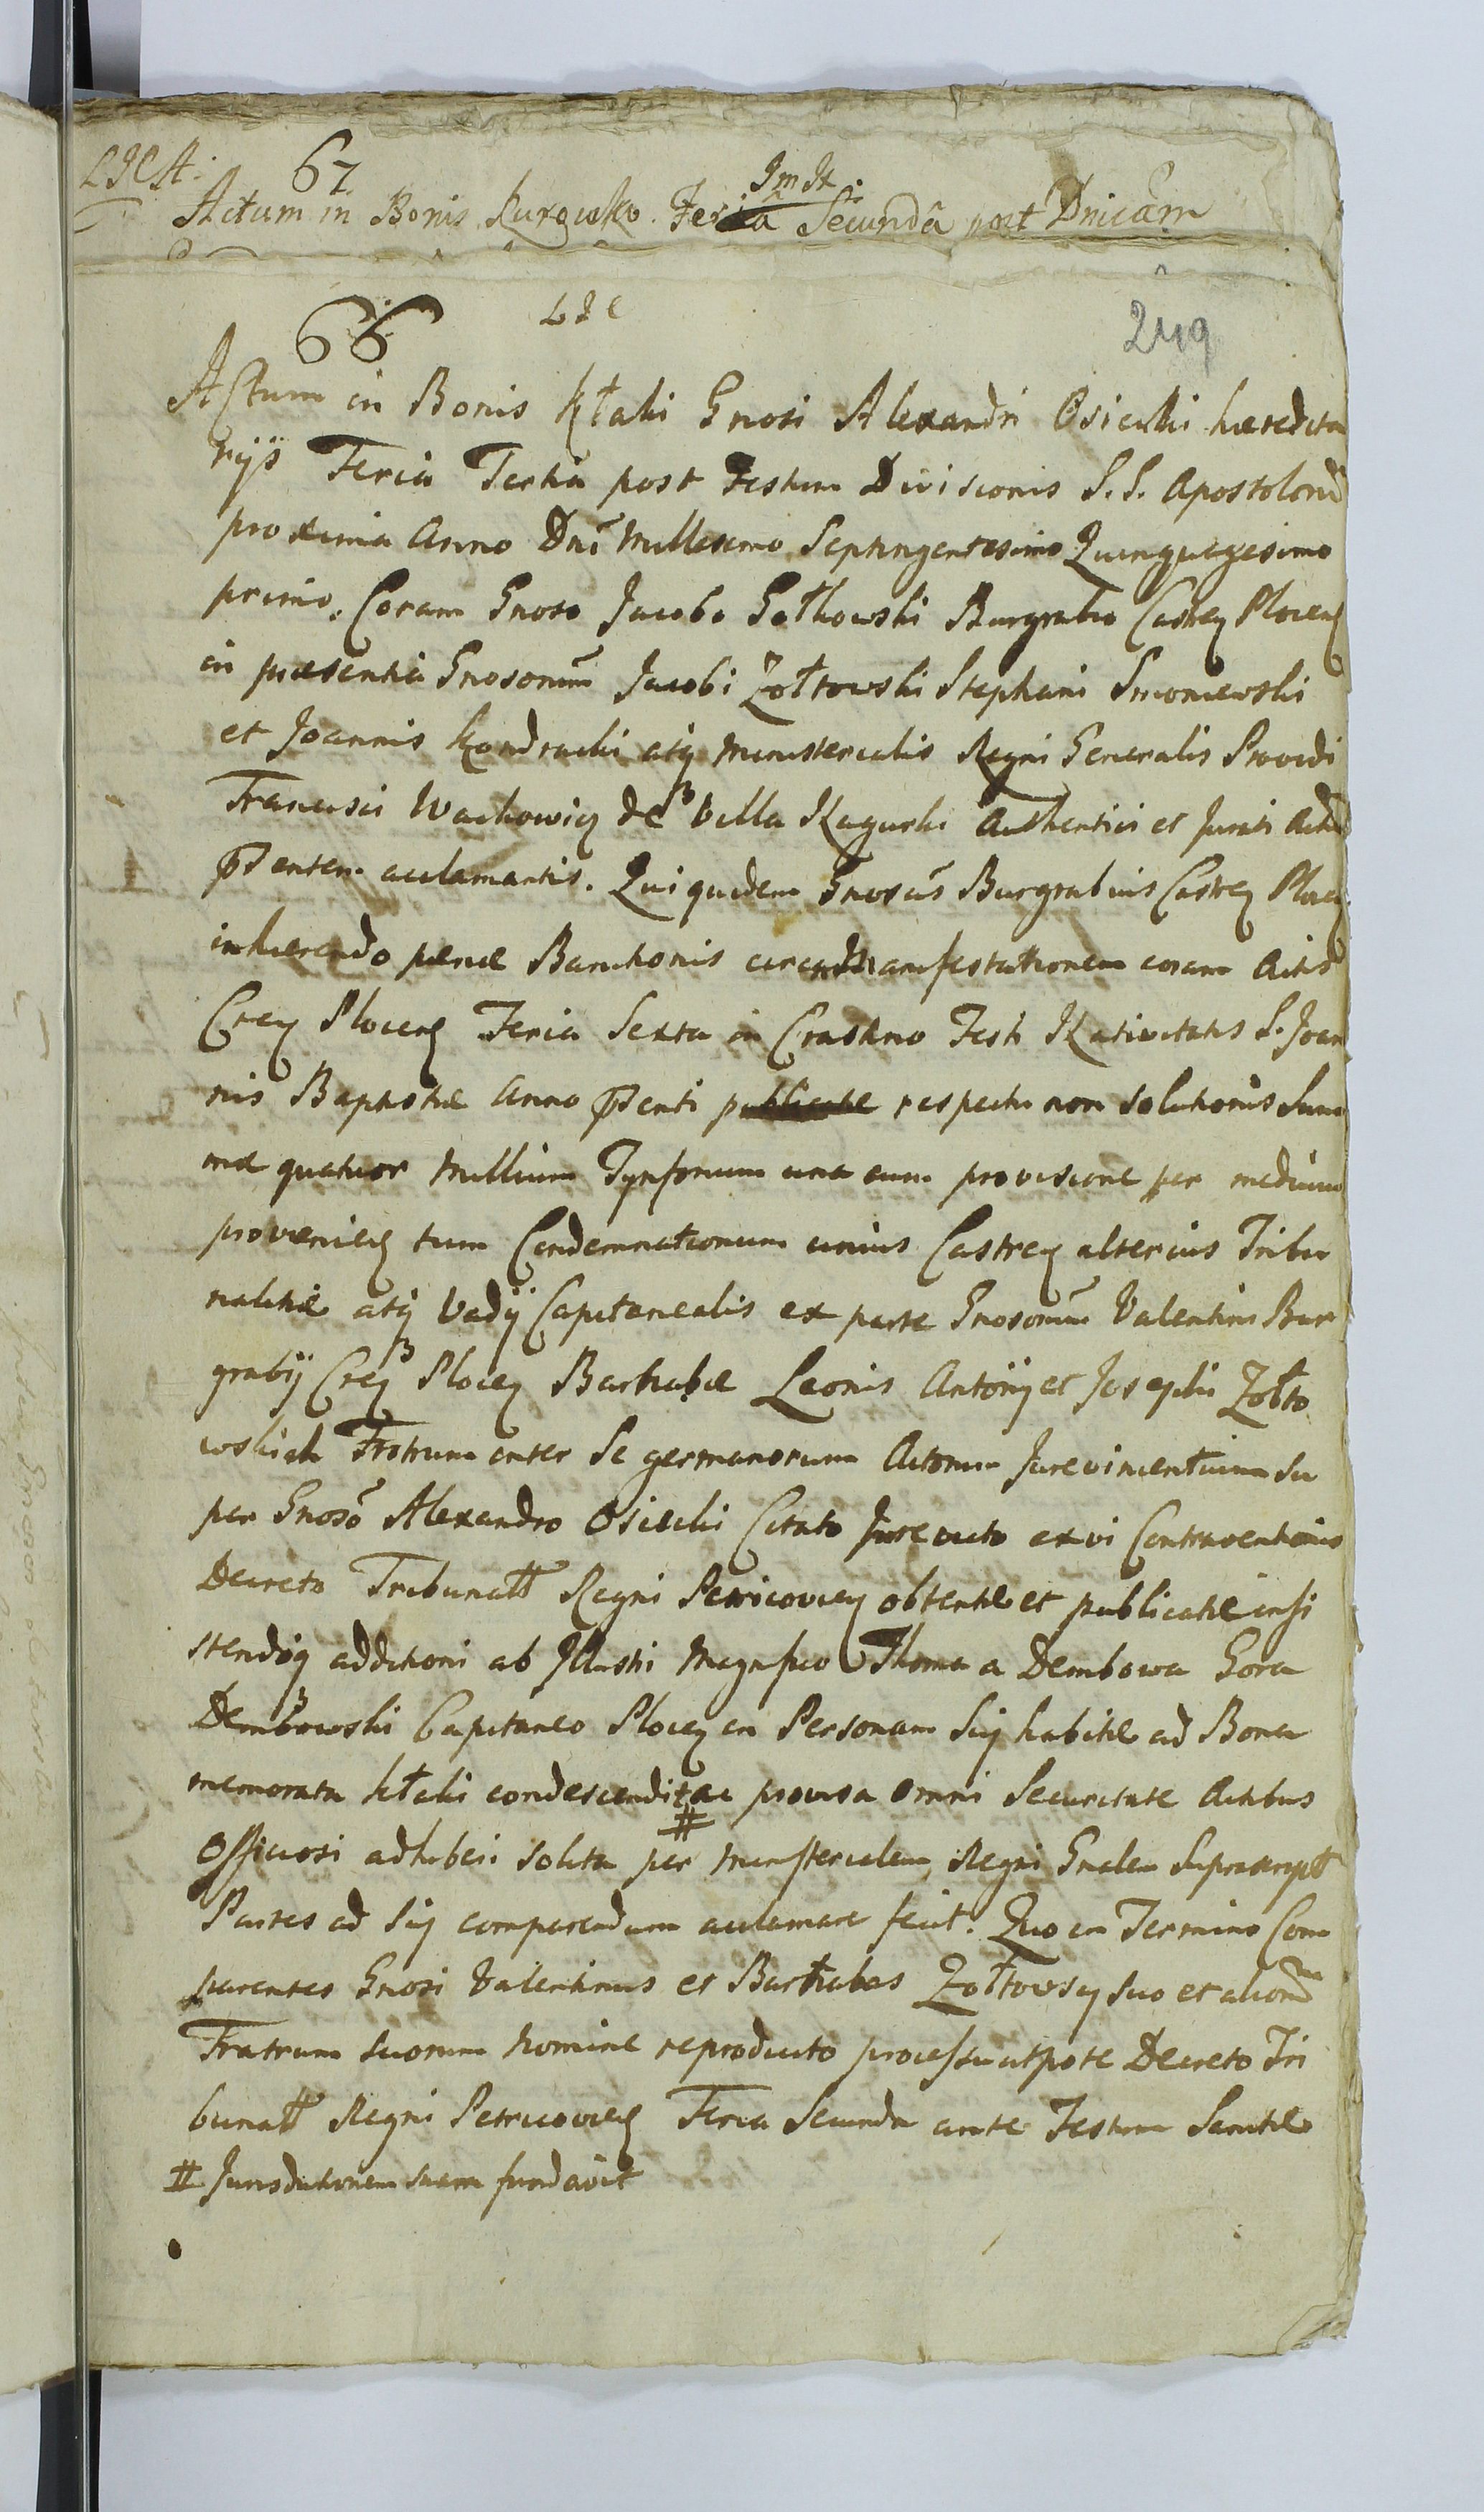 67
Actum in Bonis Kurowko Feria Secundâ post Dnicam
66
249
Actum in Bonis Kłaki Gnosi Alexandri Osiecki hæredita
rÿs Feria Tertia post Festum Divisionis S. S. Apostolorũ
proxima Anno Dni Millesimo Septingentesimo Quinquagesimo
primo. Coram Gnoso Jacobo Gołkowski Burgrabio Castreӡ Plocenӡ
in præsentia Gnosorum Jacobi Żołtowski Stephani Smoniewski
et Joannis Kondracki atq Ministerialis Regni Generalis Providi
Francisci Wackowicz de Villa Rągurki Authentici et Jurati Actũ
pntem acclamantis. Qui quidem Gnosus Burgrabius Castreӡ Plocӡ
inhærendo pœnæ Bannitionis circa Manifestationem coram Actis
Creӡ Plocenӡ Feria Sexta in Crastino Festi Nativitatis S. Joan
nis Baptistæ Anno pnti respectu non solutionis Sum
mæ quatuor Millium Tynforum una cum provisione per medium
provenienӡ tum Condemnationum unius Castreӡ alterius Tribu
nalitiæ atq Vadÿ Capitanealis ex parte Gnosorum Valentini Bur
grabÿ Creӡ Plocӡ Barnabæ Leonis Antonÿ et Josephi Żołto
wskich Fratrum inter se germanorum Actorum Jurevincentium su
per Gnoso Alexandro Osiecki Citato Jurevicto ex vi Contraventionis
Decreto Tribunalt Regni Petricovienӡ obtentæ et publicatæ insi
stendoq additioni ab Illustri Magnifico Thoma a Dembowa Gora
Dembowski Capitaneo Plocӡ in Personam Sui habitæ ad Bona
memorata Kłaki condescendit ac # provisa omni Securitate Actibus
Officiosi adhiberi solita per Ministerialem Regni Gnalem Suprascript
Partes ad Sui comparendum acclamare fecit. Quo in Termino Com
parentes Gnosi Valentinus et Barnabas Żołtowscy suo et aliorũ
Fratrum suorum nomine reproducto processu utpote Decreto Tri
bunalt Regni Petricovienӡ Feria Secunda ante Festum Sanctæ
# Jurisdictionem suam fundavit